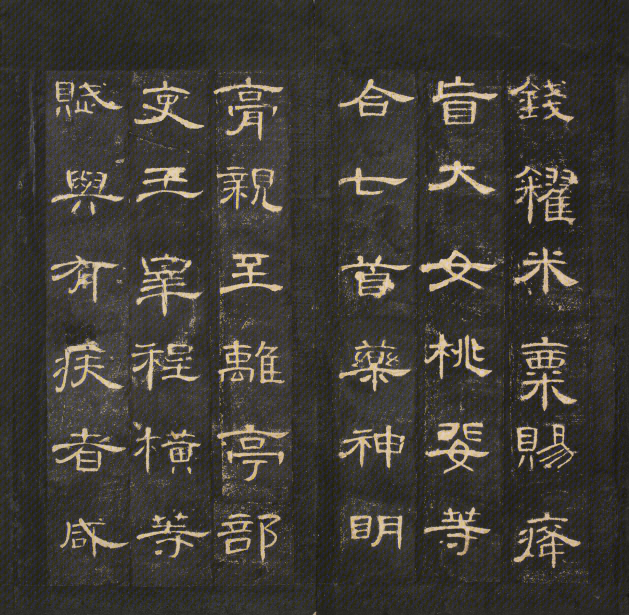 錢糴米粟賜瘽
盲大女桃婓等
合七首藥神明
膏親至離亭部
吏王宰程橫等
賦與有疾者咸